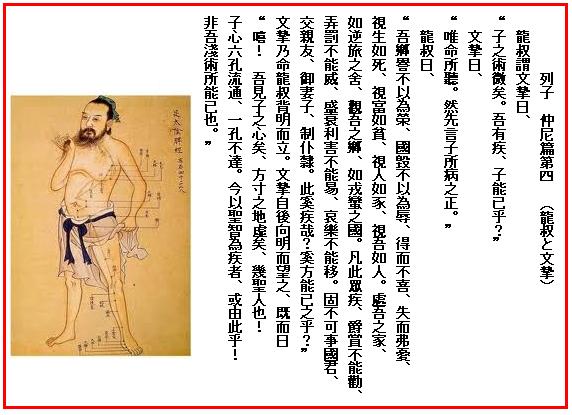 列子　仲尼篇第四　（龍叔と文摯）
龍叔謂文摯曰、
“子之術微矣。吾有疾、子能已乎?”
文摯曰、
“唯命所聽。然先言子所病之正。”
龍叔曰、
“吾鄉譽不以為榮、國毀不以為辱、得而不喜、失而弗憂、
視生如死、視富如貧、視人如豕、視吾如人。處吾之家、
如逆旅之舍、觀吾之鄉、如戎蠻之國。凡此眾疾、爵賞不能勸、
弄罰不能威、盛衰利害不能易、哀樂不能移。固不可事國君、
交親友、御妻子、制仆隸。此奚疾哉?奚方能已之乎?”
文摯乃命龍叔背明而立。文摯自後向明而望之、既而曰
“嘻!　吾見子之心矣、方寸之地虛矣、幾聖人也!
子心六孔流通、一孔不達。今以聖智為疾者、或由此乎!
非吾淺術所能已也。”
足太陰脾經